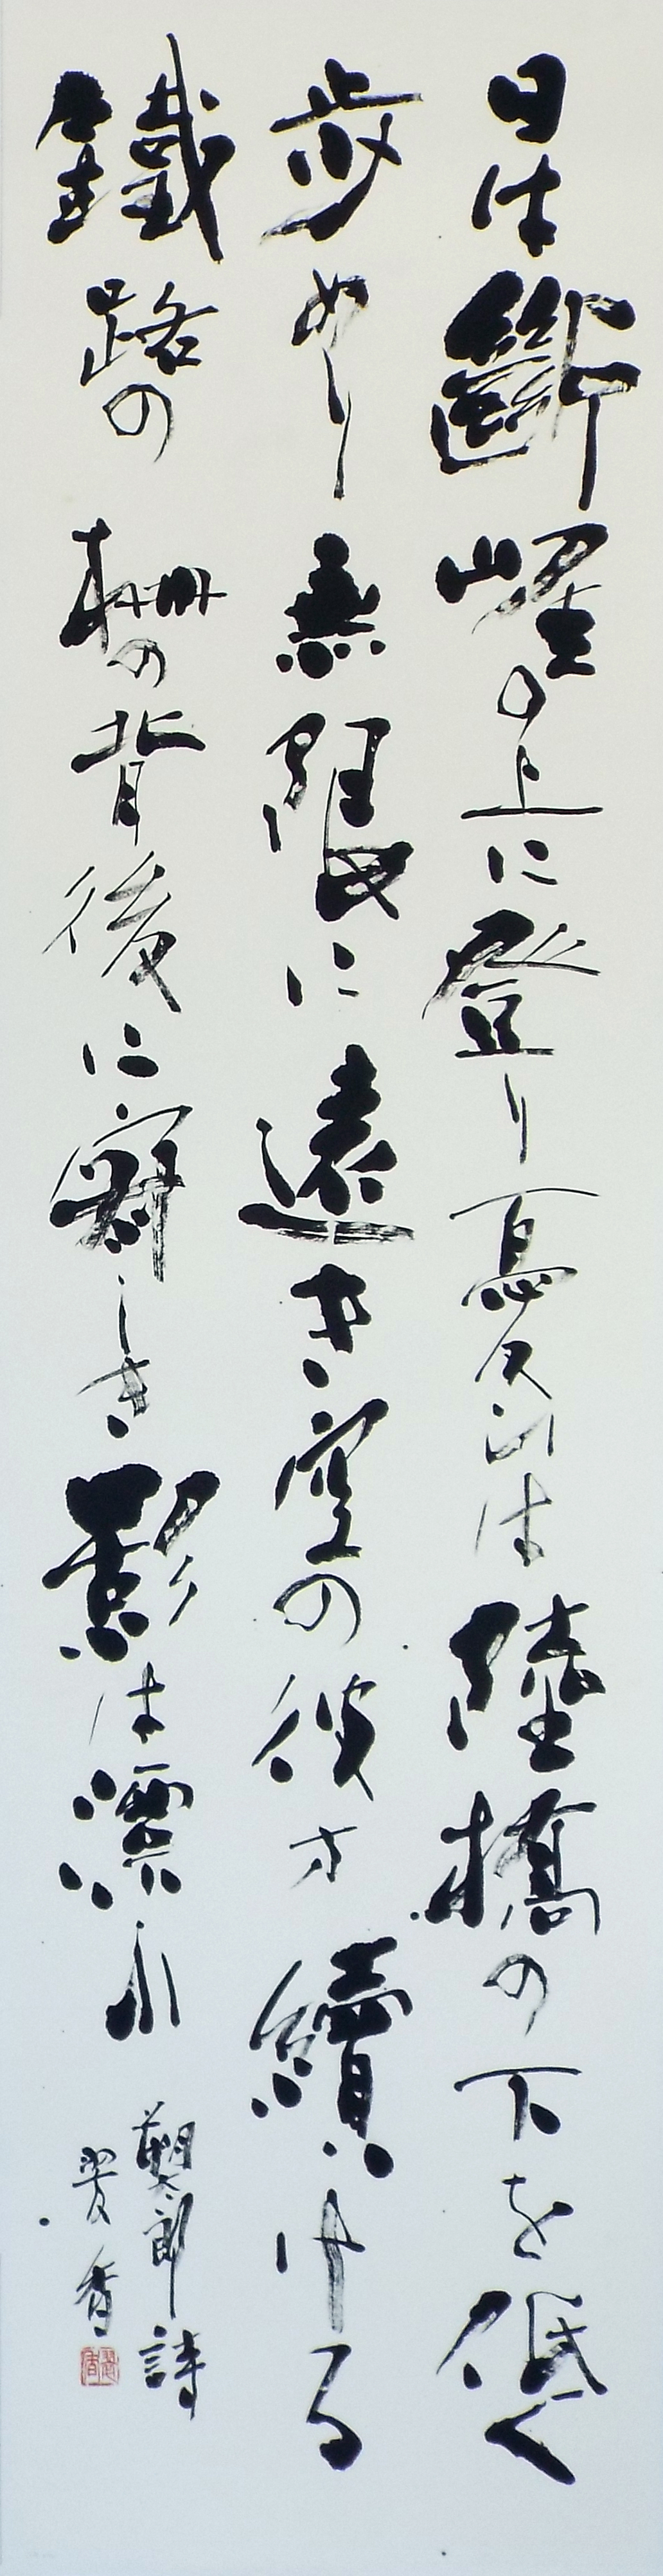 日は斷崖の上に登り憂ひは陸橋の下を低く
歩めり無限に遠き空の彼方續ける
鐵路の柵の背後に寂しき影は漂ふ
朔太郎詩
香